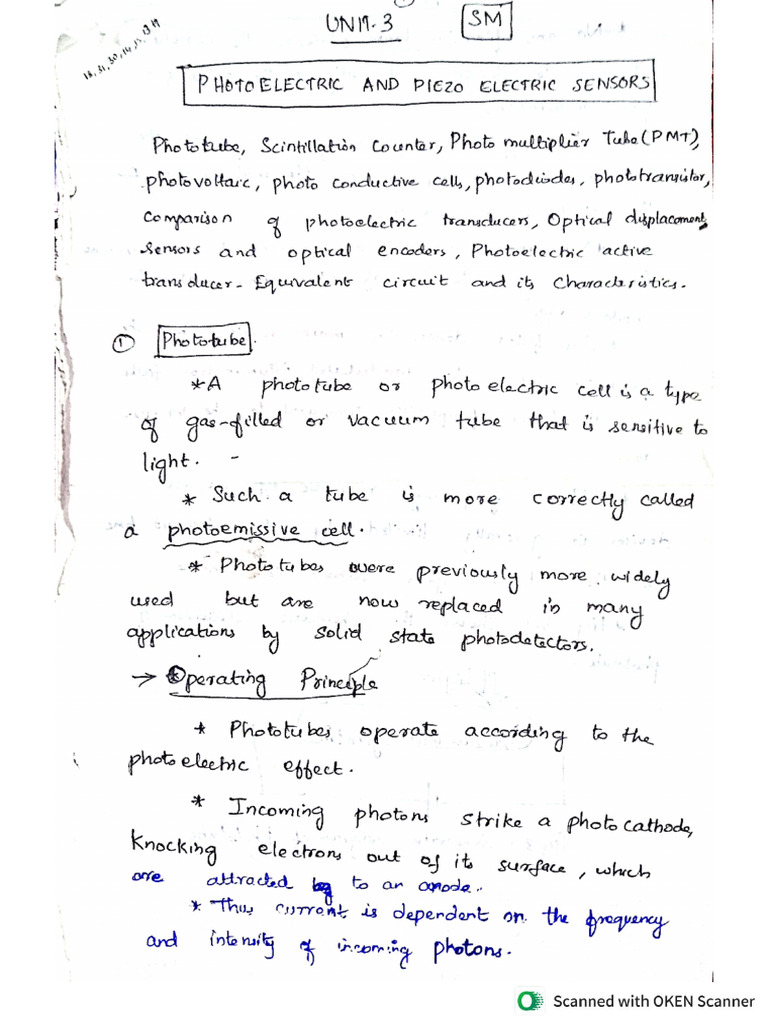 UNIT-3
SM
13, 31, 30, 14, 15, 13 19
PHOTOELECTRIC AND PIEZO ELECTRIC SENSORS
Phototube, Scintillation Counter, Photo multiplier Tube (PMT),
photovoltaic, photo conductive cells, photodiodes, phototransistor,
Comparison of photoelectric transducers, Optical displacement
sensors and optical encoders, Photoelectric active
transducer - Equivalent circuit and its characteristics.
① Phototube.
* A phototube or photo electric cell is a type
of gas-filled or vacuum tube that is sensitive to
light. -
* Such a tube is more correctly called
a photoemissive cell.
* Phototubes were previously more widely
used but are now replaced in many
applications by solid state photodetectors.
→ Operating Principle
* Phototubes operate according to the
photoelectric effect.
* Incoming photons strike a photocathode,
Knocking electrons out of its surface, which
are attracted to an anode.
* Thus current is dependent on the frequency
and intensity of incoming photons.
Scanned with OKEN Scanner